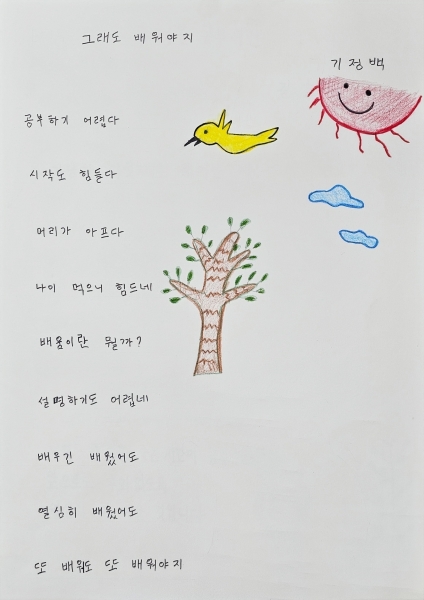 그래도 배워야지
기정백
공부하기 어렵다
시작도 힘들다
머리가 아프다
나이 먹으니 힘드네
배움이란 뭘까?
설명하기도 어렵네
배우긴 배웠어도
열심히 배웠어도
또 배워도 또 배워야지